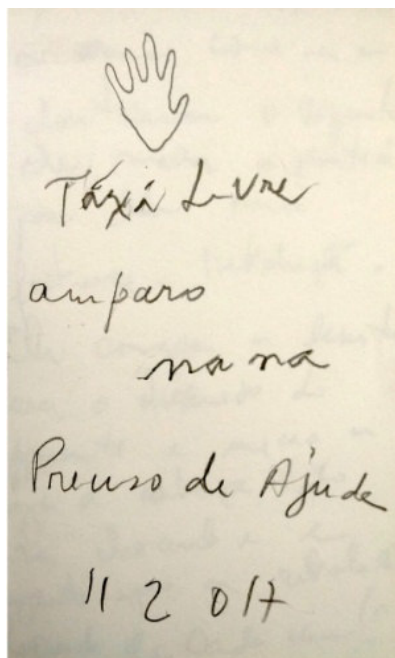 Táxi Livre
amparo
na na
Preciso de Ajuda
11 2 017